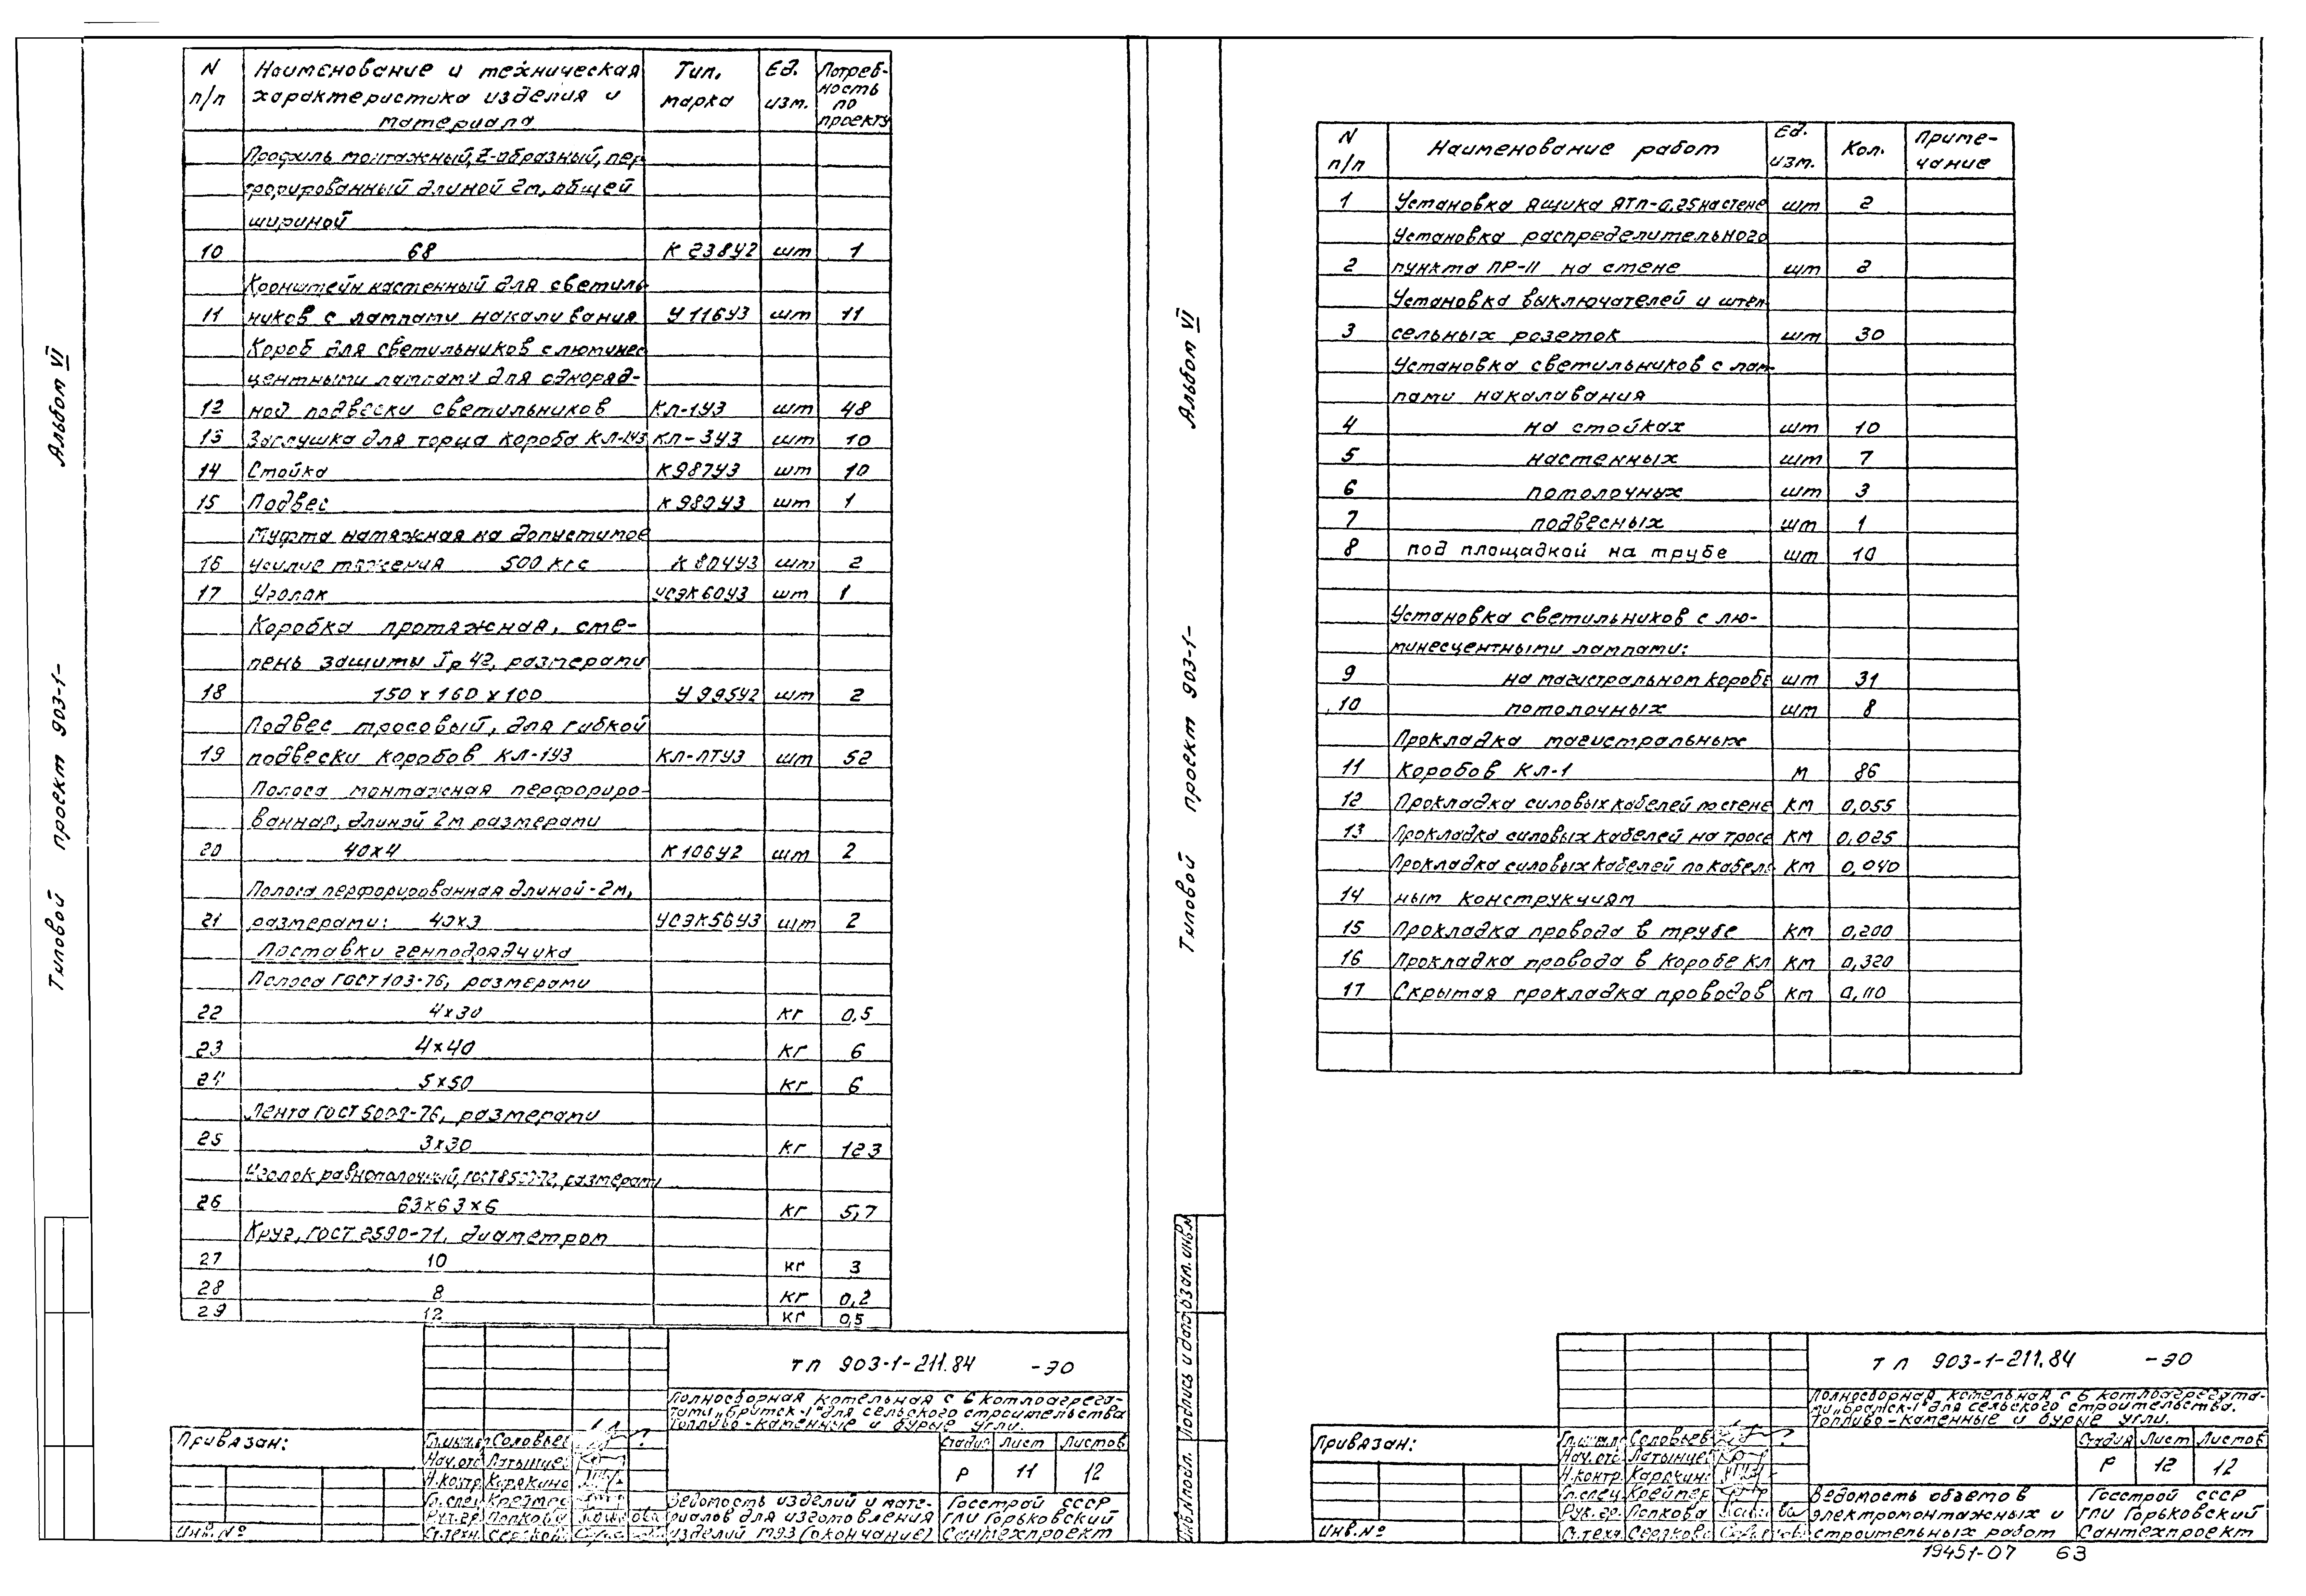 Альбом VI
Типовой проект 903-1-
N п/п Наименование и техническая характеристика изделия и материала Тип, марка Ед. изм. Потреб-ность по проекту
Профиль монтажный, Z-образный, пер-
форированный длиной 2м, общей
шириной
10 68 К 238У2 шт 1
Кронштейн настенный для светиль-
11 ников с лампами накаливания У 116У3 шт 11
Короб для светильников с люминес
центными лампами для однoряд-
12 ной подвески светильников КЛ-1У3 шт 48
13 Заглушка для торца короба КЛ-1У3 КЛ-3У3 шт 10
14 Стойка К987У3 шт 10
15 Подвес К980У3 шт 1
Муфта натяжная на допустимое
16 усилие тяжения 500 кгс К 804У3 шт 2
17 Уголок УСЭК60У3 шт 1
Коробка протяжная, сте-
пень защиты Iр 42, размерами
18 150 х 160 х 100 У 995У2 шт 2
Подвес тросовый, для гибкой
19 подвески коробов КЛ-1У3 КЛ-ПТУ3 шт 52
Полоса монтажная перфориро-
ванная, длиной 2м размерами
20 40х4 К106У2 шт 2
Полоса перфорированная длиной-2м,
21 размерами: 40х3 УСЭК56У3 шт 2
Поставки генподрядчика
Полоса ГОСТ 103-76, размерами
22 4х30 кг 0,5
23 4х40 кг 6
24 5х50 кг 6
Лента ГОСТ 6009-76, размерами
25 3х30 кг 123
Уголок равнополочный, ГОСТ 8509-72, размерами
26 63х63х6 кг 5,7
Круг, ГОСТ 2590-71, диаметром
27 10 кг 3
28 8 кг 0,2
29 12 кг 0,5
ТП 903-1-211.84 -ЭО
Полносборная котельная с 6 котлоагрега-
тами „Братск-1" для сельского строительства
Топливо-каменные и бурые угли.
Стадия Лист Листов
Р 11 12
Привязан:
Инв.№
Гл.инж.пр Соловьев
Нач.отд Латынцев
Н.контр. Карякина
Гл.спец. Креймер
Рук.гр. Попкова
Ст.техн. Серткова
Ведомость изделий и мате-
риалов для изготовления
изделий МЭЗ (окончание)
Госстрой СССР
ГПИ Горьковский
Сантехпроект
Альбом VI
Типовой проект 903-1-
Инв.№ подл. Подпись и дата Взам. инв.№
N п/п Наименование работ Ед. изм. Кол. Приме-чание
1 Установка ящика ЯТП-0,25 на стене шт 2
Установка распределительного
2 пункта ПР-11 на стене шт 2
Установка выключателей и штеп
3 сельных розеток шт 30
Установка светильников с лам-
пами накаливания
4 на стойках шт 10
5 настенных шт 7
6 потолочных шт 3
7 подвесных шт 1
8 под площадкой на трубе шт 10
Установка светильников с лю-
минесцентными лампами:
9 на магистральном коробе шт 31
10 потолочных шт 8
Прокладка магистральных
11 Коробов КЛ-1 м 86
12 Прокладка силовых кабелей по стене км 0,055
13 Прокладка силовых кабелей на тросе км 0,025
Прокладка силовых кабелей по кабель км 0,040
14 ным конструкциям
15 Прокладка провода в трубе км 0,200
16 Прокладка провода в коробе КЛ км 0,320
17 Скрытая прокладка проводов км 0,110
ТП 903-1-211.84 -ЭО
Полносборная котельная с 6 котлоагрегата-
ми „Братск-1" для сельского строительства.
Топливо-каменные и бурые угли.
Стадия Лист Листов
Р 12 12
Привязан:
Инв.№
Гл.инж.пр Соловьев
Нач.отд Латынцев
Н.контр. Карякина
Гл.спец. Креймер
Рук.гр. Попкова
Ст.техн. Серткова
Ведомость объемов
электромонтажных и
строительных работ
Госстрой СССР
ГПИ Горьковский
Сантехпроект
19451-07 63